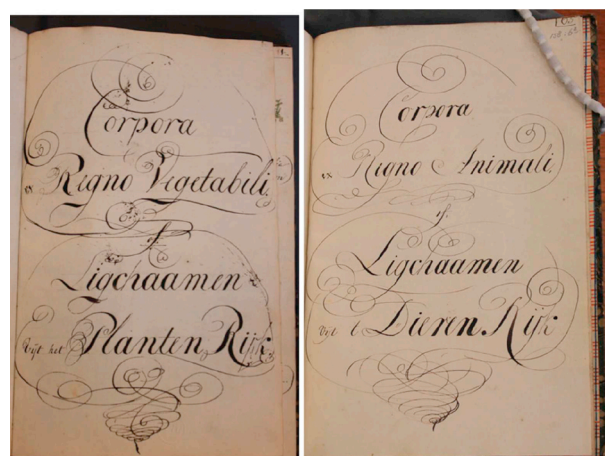 Corpora
ex Regno Vegetabili,
of
Ligchaamen
Uijt het Planten Rijk
Corpora
ex Regno Animali
of
Ligchaamen
Uijt t Dieren Rijk